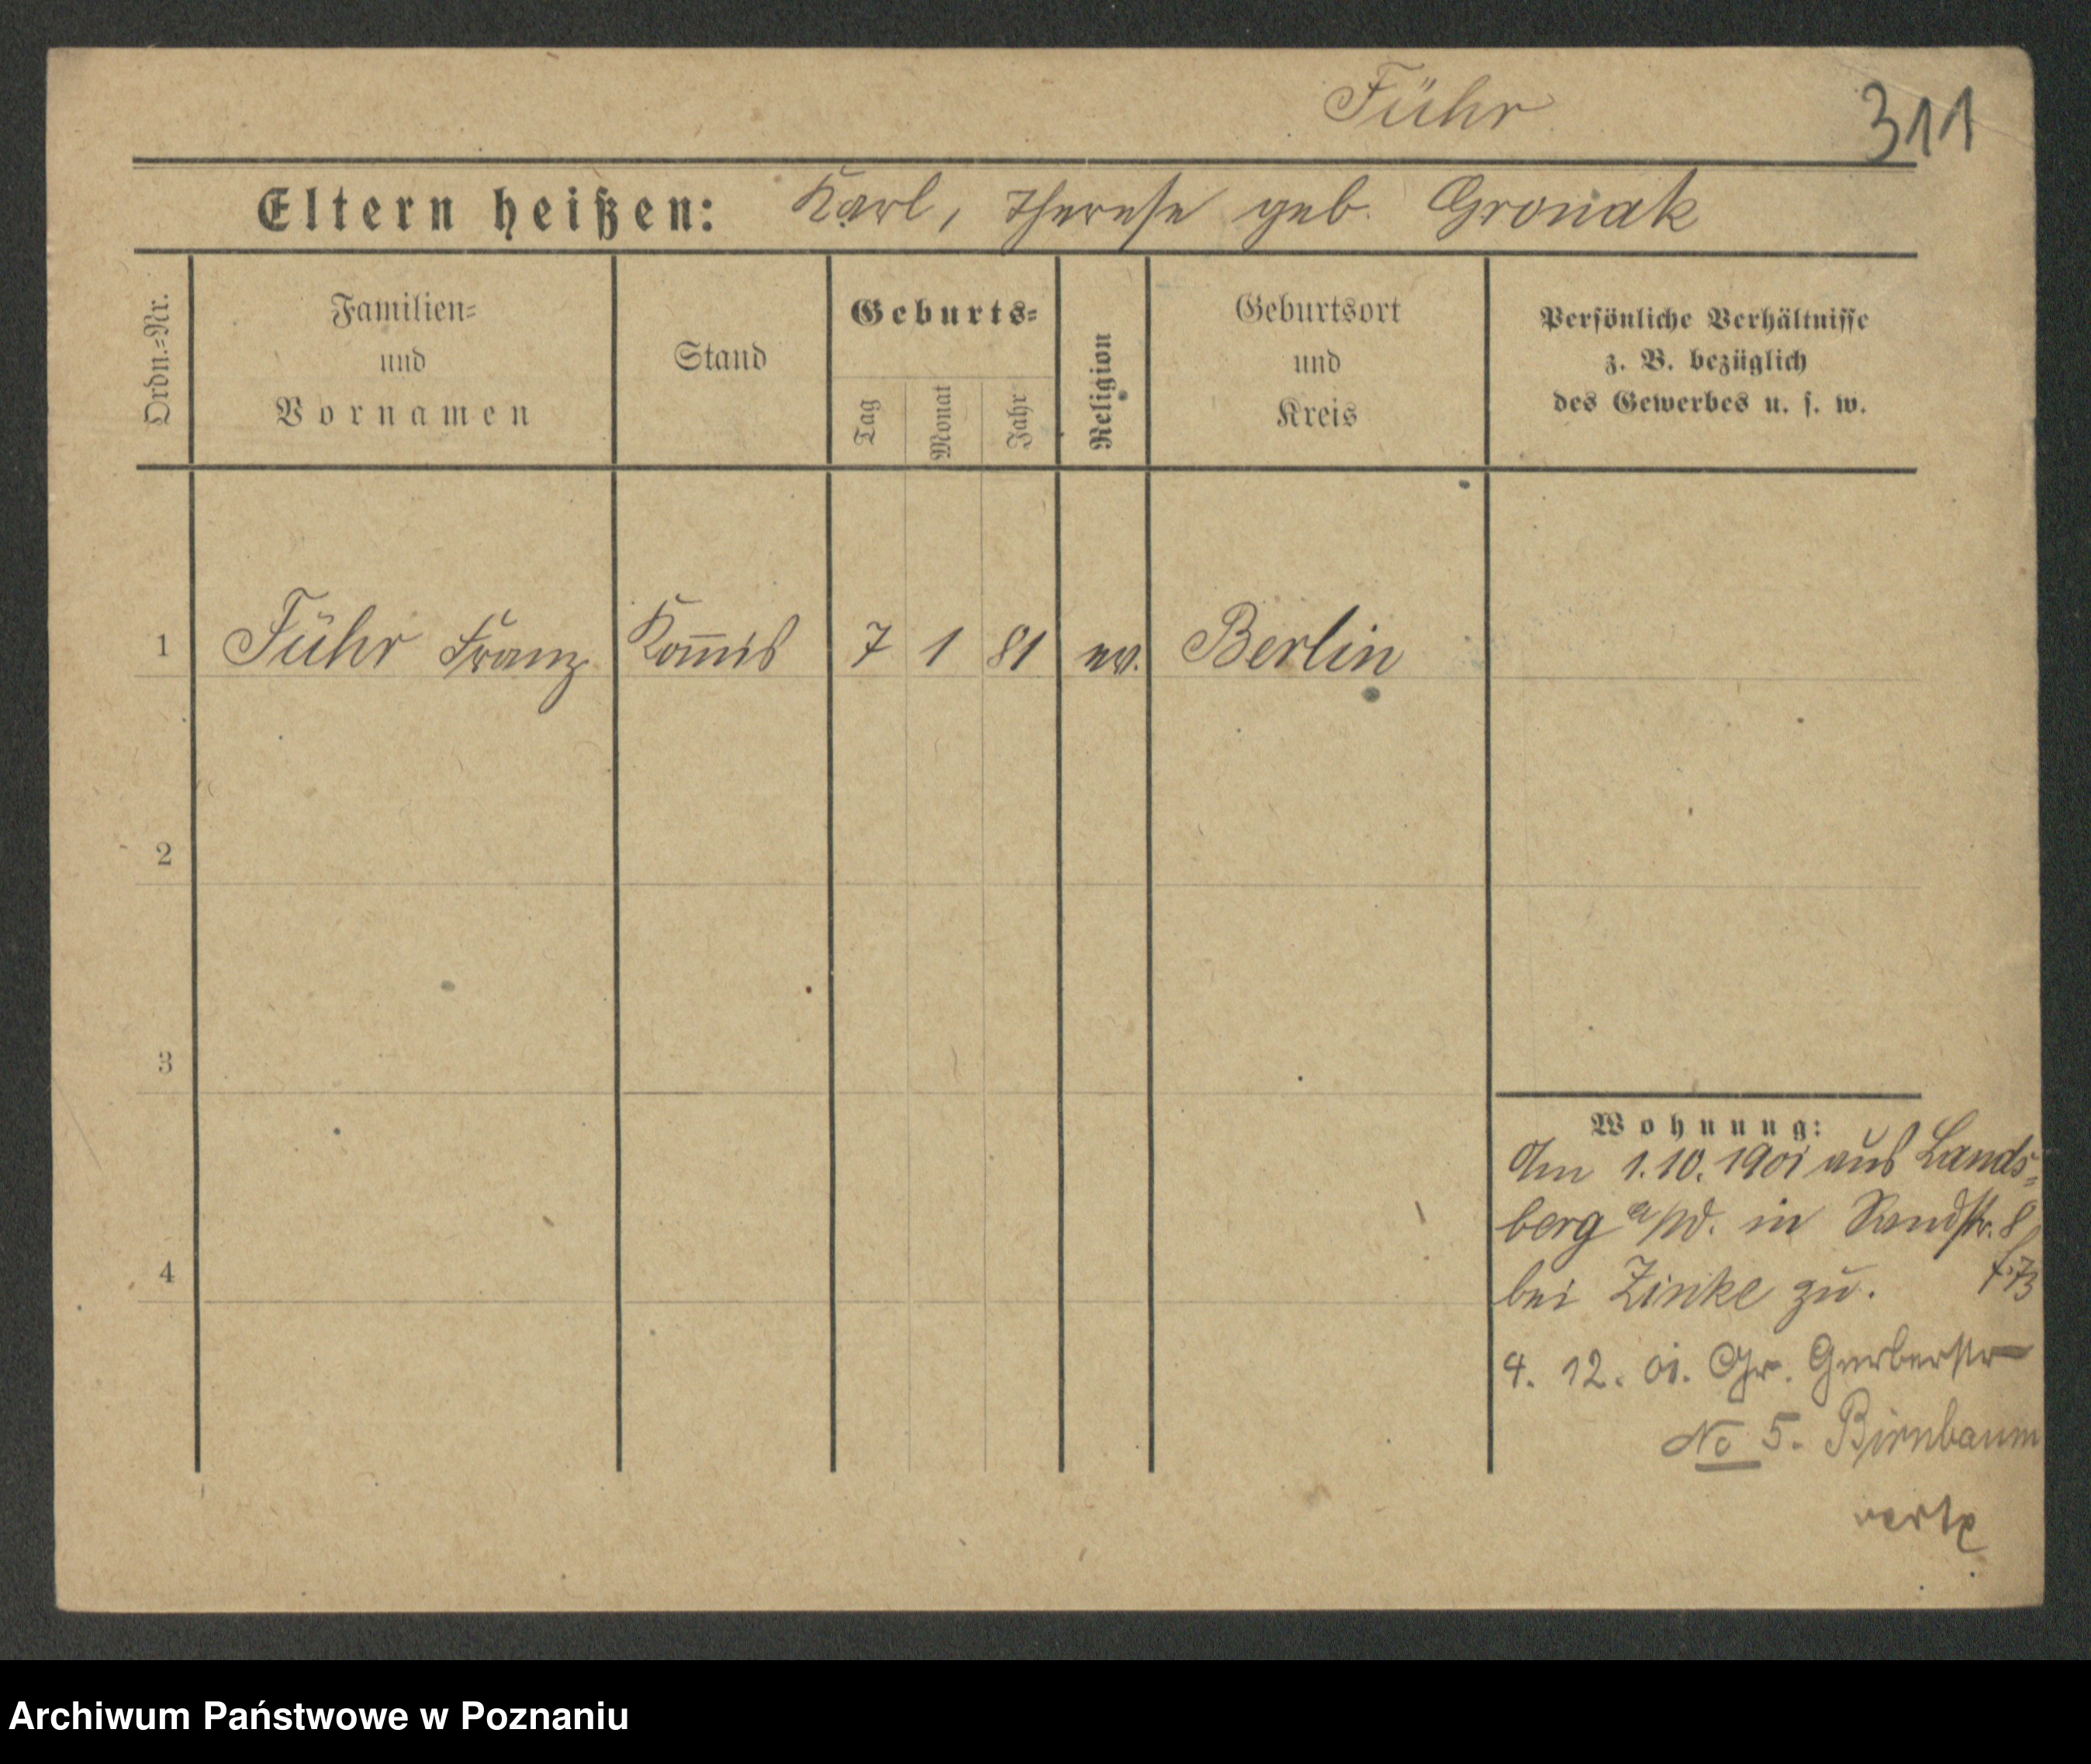 Führ
311
Eltern heißen: Karl, Therese geb. Gronak
Ordn.=Nr.
Familien=
und
Vornamen
Stand
Geburts=
Tag
Monat
Jahr
Religion
Geburtsort
und
Kreis
Persönliche Verhältnisse
z. B. bezüglich
des Gewerbes u. s. w.
1 Führ Franz Kom̅is 7 1 81 ev. Berlin
2
3
4
Wohnung:
Am 1.10.1901 aus Lands-
berg a/W. in Sandstr. 8
bei Zinke zu.
4. 12. 01. Gr. Gerberstr
No 5. Birnbaum
verte
Archiwum Państwowe w Poznaniu